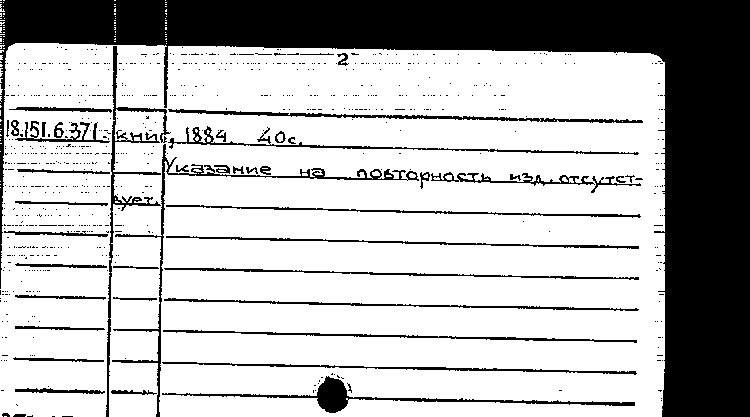 2
18.151.6.371. книг, 1884. 40с.
Указание на повторность изд. отсутст-
вует.